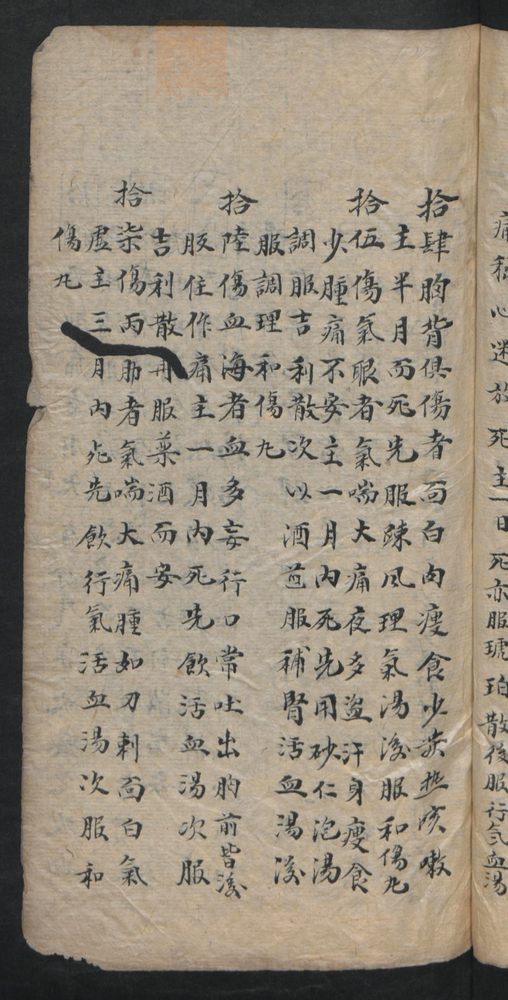 痛 心迷於死主一日死亦服琥珀散後服行氣血湯
拾肆胸背俱傷者面白肉瘦食少發熱咳嗽
主半月而死先服疎風理氣湯後服和傷丸
拾伍傷氣眼者氣喘大痛夜多盜汗身瘦食
少腫痛不安主一月內死先用砂仁泡湯
調服吉利散次以酒煎服補腎活血湯後
服調理和傷丸
拾陸傷血海者血多妄行口常吐出胸前背後
胺住作痛主一月內死先飲活血湯次服
吉利散再服藥酒而安
拾柒傷丙肋者氣喘大痛腫如刀刺面白氣
虛主三月內死先飲行氣活血湯次服和
傷丸